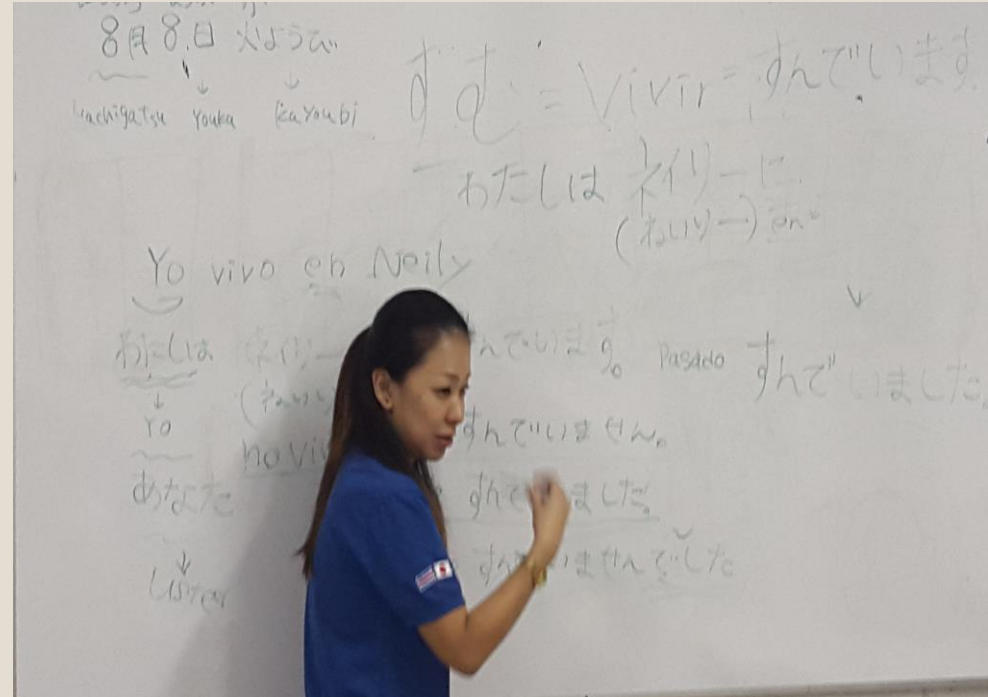 8月8日 火ようび
hachigatsu youka kayoubi
すむ = Vivir = すんでいます
わたしは ネイリーに
(ねいりー) en
Yo vivo en Neily
わたしは ネイリー すんでいます。 Pasado すんでいました。
Yo
no viv すんでいません。
あなた すんで ました。
すん いませんでした
Usted